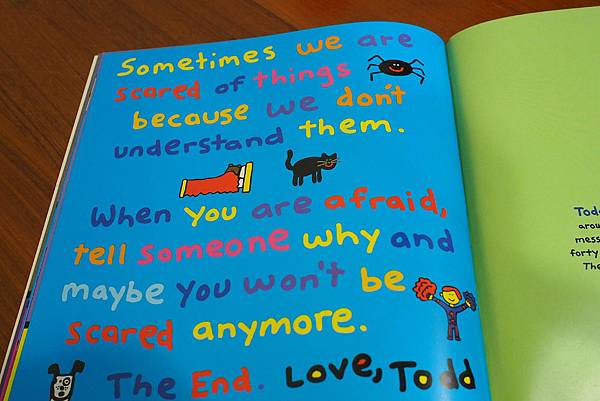 Sometimes we are
scared of things
because we don't
understand them.
When you are afraid,
tell someone why and
maybe you won't be
scared anymore.
The End. Love, Todd
Todd
arou
mess
forty
The